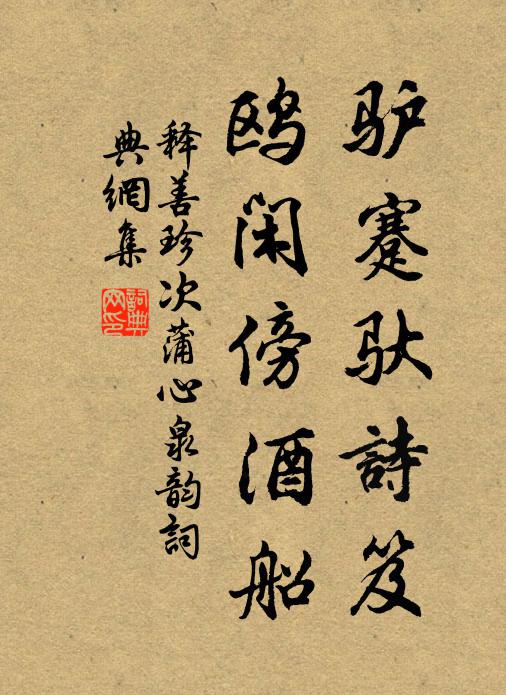 驴蹇驮詩笈
鸥闲傍酒船
释善珍次蒲心泉韵詞
典網集
詞典網印